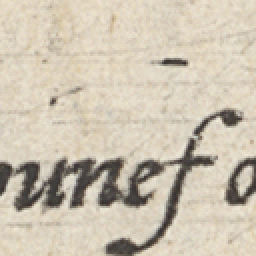 ouneſ o